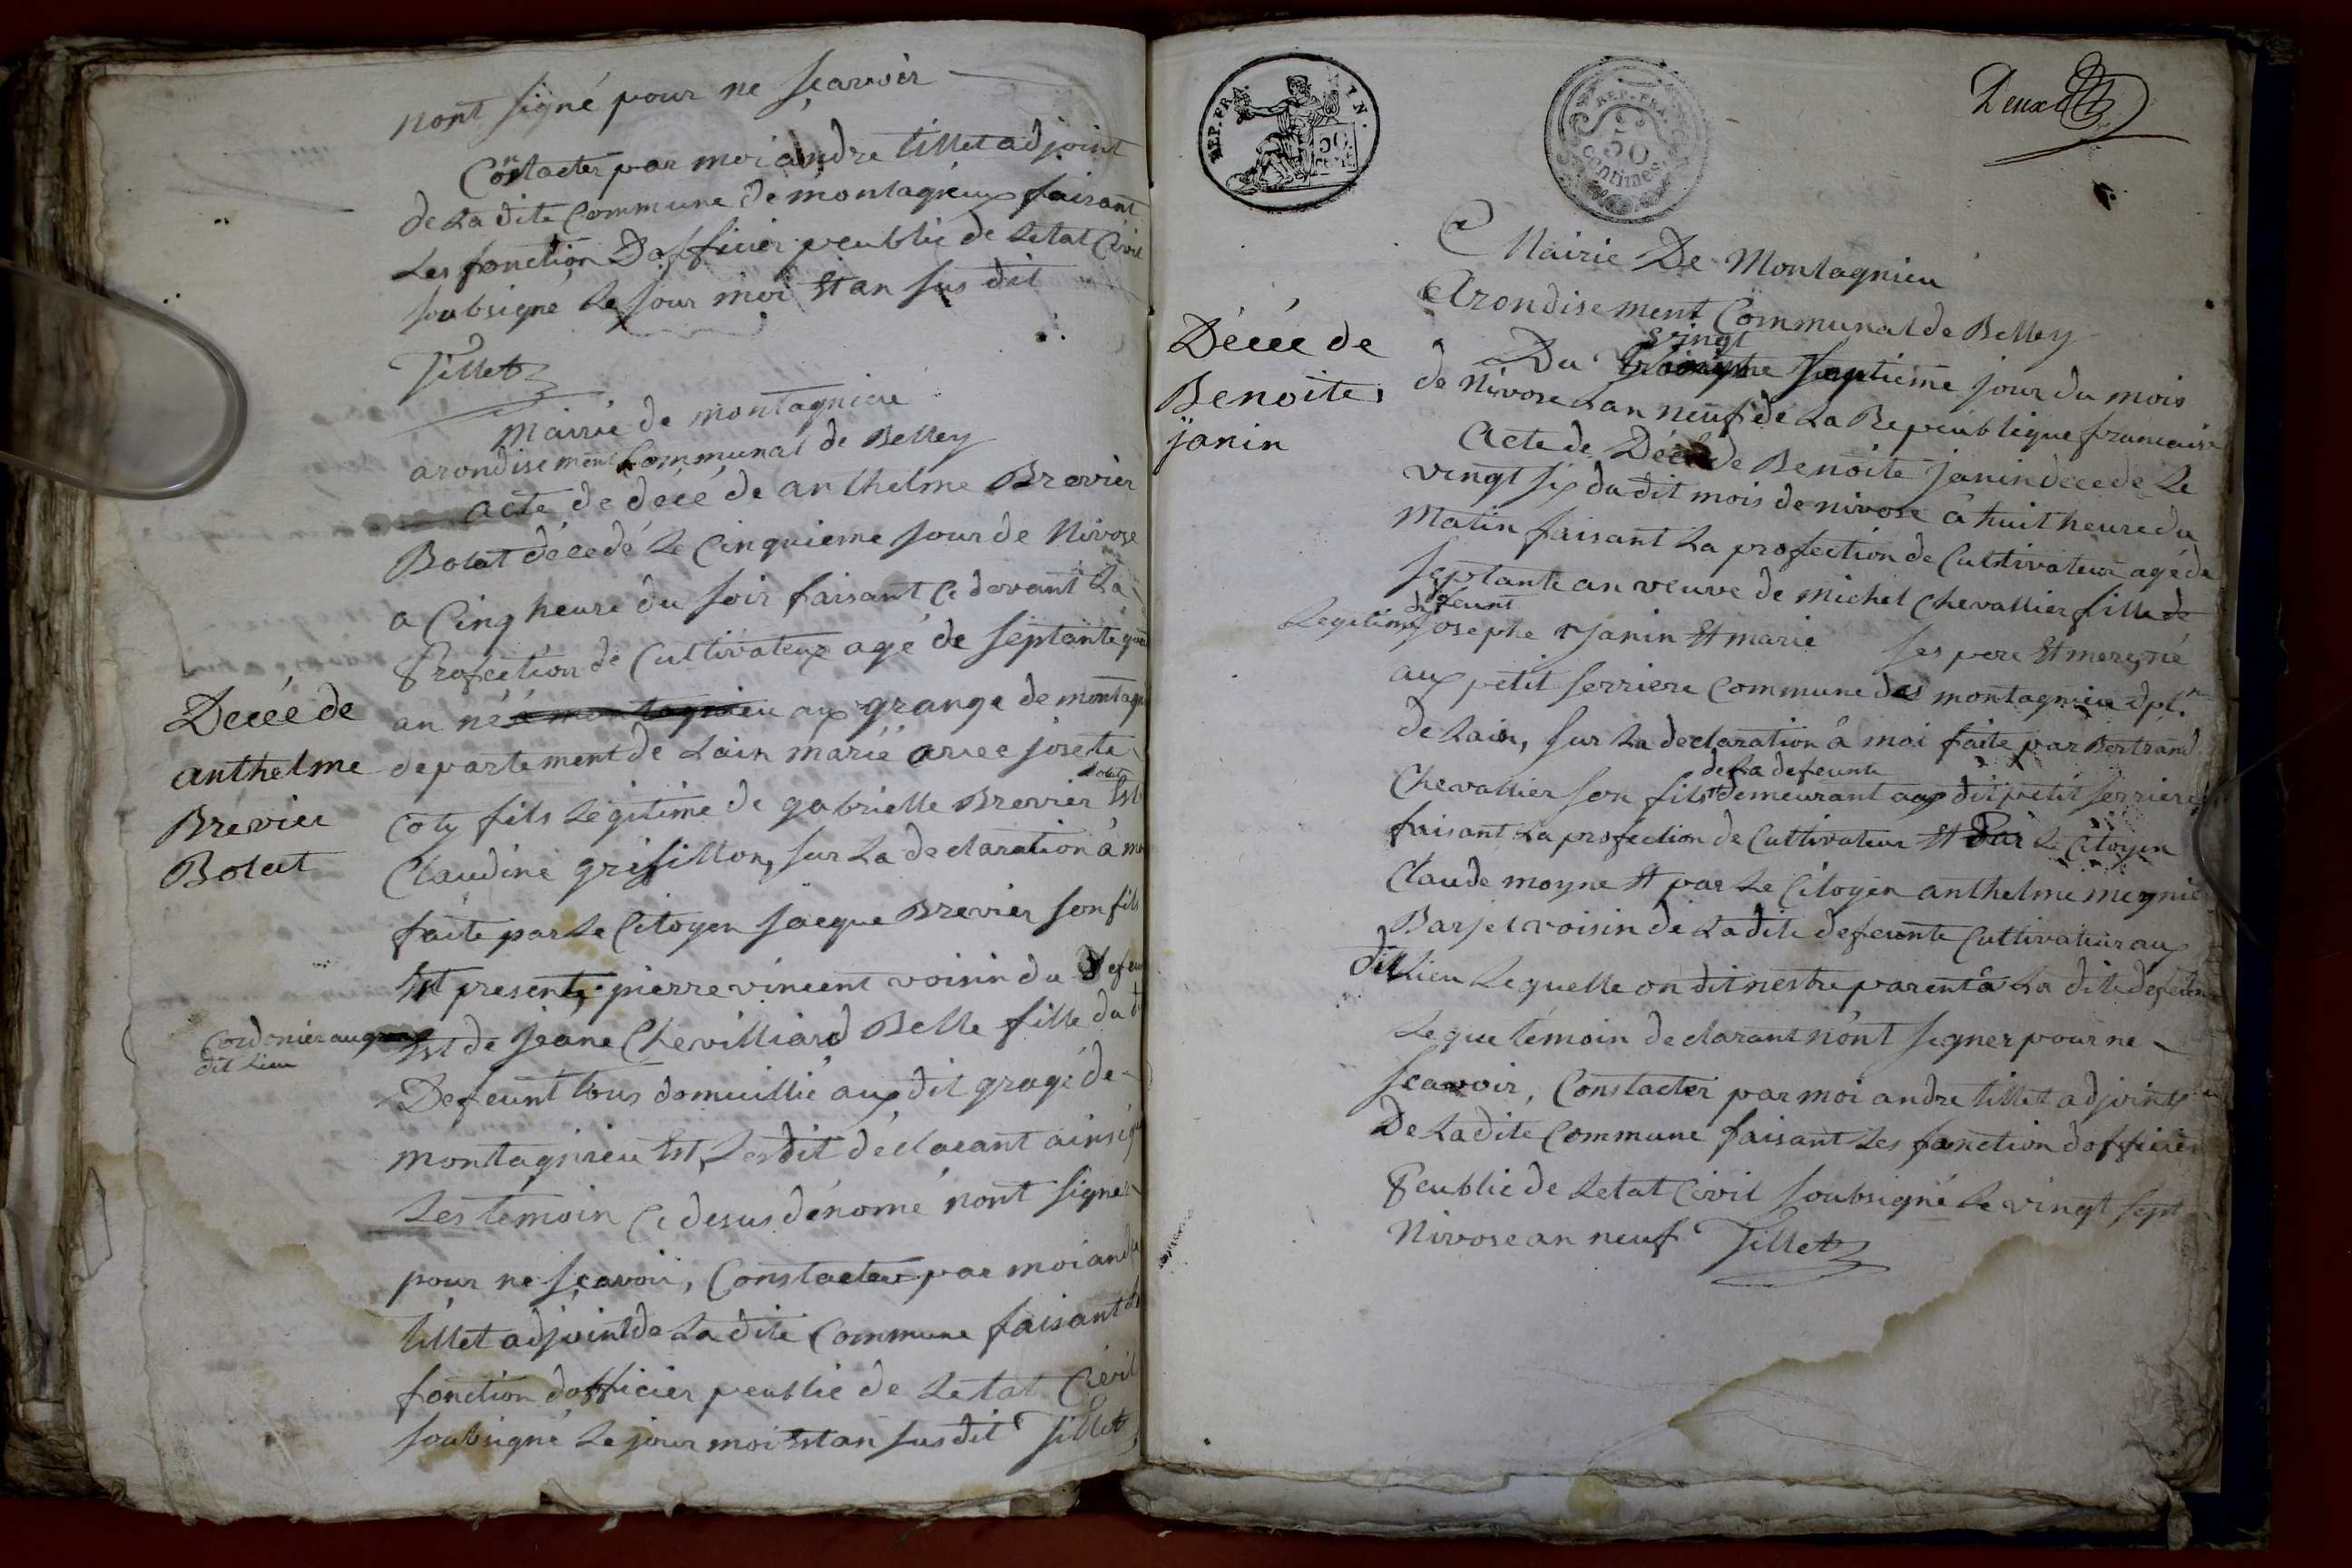 nont signé pour ne sçavoir
Constacter par moi andre tillet adjoint
de La dite Commune de montagnieux faisant
Les fonction Dofficier peublic de Letat Civil
soubsigné Le jour moi Et an sus dit
Tillet
Mairie de montagnieu
arondisement Communal de Belley
acte de décé de anthelme Brevier
Bolat décedé Le Cinquieme jour de Nivose
a Cinq heure du soir faisant Ci devant La
Profection de Cultivateur agé de septante
an né a montagnieu aux grange de montag
departement de Lain marié avec josete
Coty fils Legitime de gabrielle Brevier Bolat Est
Claudine grisillon, sur La declaration à moi
faite par Le Citoyen jacque Brevier son fils
Est presente pierre vincent voisin du defeu
Est de jeane Chevilliard Belle fille du d
Defeunt tous domicillié aux dit grage de
montagnieu Est, Les dit déclarant ainsi que
Les temoin Ci desus dénomé nont signé
pour ne sçavoir, Constacter par moi andre
tillet adjoint de La dite Commune faisant Les
fonction dofficier peublic de Letat Civil
soubsigné Le jour moi Et an sus dit Tillet
Décée de
anthelme
Brevier
Bolat
Cordonier au
dit Lieu
REP. FRA.
50
cent.
REP. FRA.
50
centimes
Deux
Mairie De Montagnieu
Arondisement Communal de Belley
Du vingt septieme jour du mois
de Nivose Lan neuf de La Republique francaise
Acte de Décé de Benoite janin decede Le
vingt six du dit mois de nivose a huit heure du
Matin faisant La profection de Cultivateur agé de
septante an veuve de Michel Chevallier fille de
Legitime defeunt josephe janin Et marie ses pere Et mere, né
aux petit serriere Commune des montagnieu dpt.
de Lain, sur La declaration à moi faite par Bertrand
Chevallier son fils de La defeunte demeurant aux dit petit serriere
faisant La profection de Cultivateur Et Par Le Citoyen
Claude moyne Et par Le Citoyen anthelme meynier
Barjel voisin de La dite defeunte Cultivateur aux
dit Lieu Lequelle on dit nestre parent à La dite defeunte
Le que témoin declarant nont signer pour ne
scavoir, Constacter par moi andre tillet adjoint
De La dite Commune faisant Les fonction dofficier
Peublic de Letat Civil soubsigné Le vingt sept
Nivose an neuf Tillet
Décée de
Benoite
janin